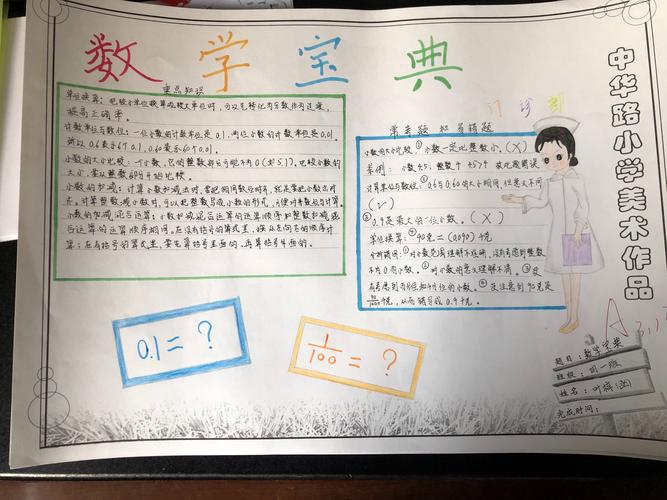 数学宝典
重点知识
单位换算:把较小单位换算成较大单位时,可以先转化为分数作为过渡,
提高正确率。
计数单位与数位:一位小数的计数单位是0.1,两位小数的计数单位是0.01,
所以0.6表示6个0.1,0.60表示60个0.01。
小数的大小比较:一个小数,它的整数部分可能不为0(如5.1),比较小数的
大小,要从整数部分开始比较。
小数的加减:计算小数加减法时,要把相同数位对齐,就是要把小数点对
齐。计算整数减小数时,可以把整数写成小数的形式,方便对齐数位与计算。
小数的加减混合运算:小数加减混合运算的运算顺序和整数加减混
合运算的运算顺序相同。在没有括号的算式里,按从左向右的顺序计
算;在有括号的算式里,要先算括号里面的,再算括号外面的。
门诊部
常考题和易错题
小数的大小比较①小数一定比整数小。(X)
举例:小数
计算单位与数位:②0.6与0.60的大小相同,但意义不同
(√)
③0.9是最大的一位小数。(X)
单位换算:④90克=(0.090)千克
分析错因:①对小数范围理解不理解,没有考虑到整数
不为0的小数。②对小数的意义理解不清。③没
有考虑到
④没注意到90克是
90/1000千克,从而错写成0.9千克。
0.1=?
1/100=?
中华路小学美术作品
A
题目:数学宝典
班级:四一班
姓名:叶
完成时间: